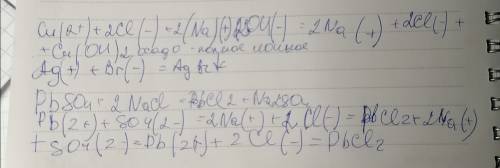 Cu(2+) + 2Cl(-) + 2(Na)(+) 2OH(-) = 2Na(+) + 2Cl(-) +
+ Cu(OH)2 осадо - полное ионное
Ag(+) + Br(-) = AgBr↓
PbSO4 + 2NaCl = PbCl2 + Na2SO4
Pb(2+) + SO4(2-) = 2Na(+) + 2Cl(-) = PbCl2 + 2Na(+)
+ SO4(2-) = Pb(2+) + 2Cl(-) = PbCl2